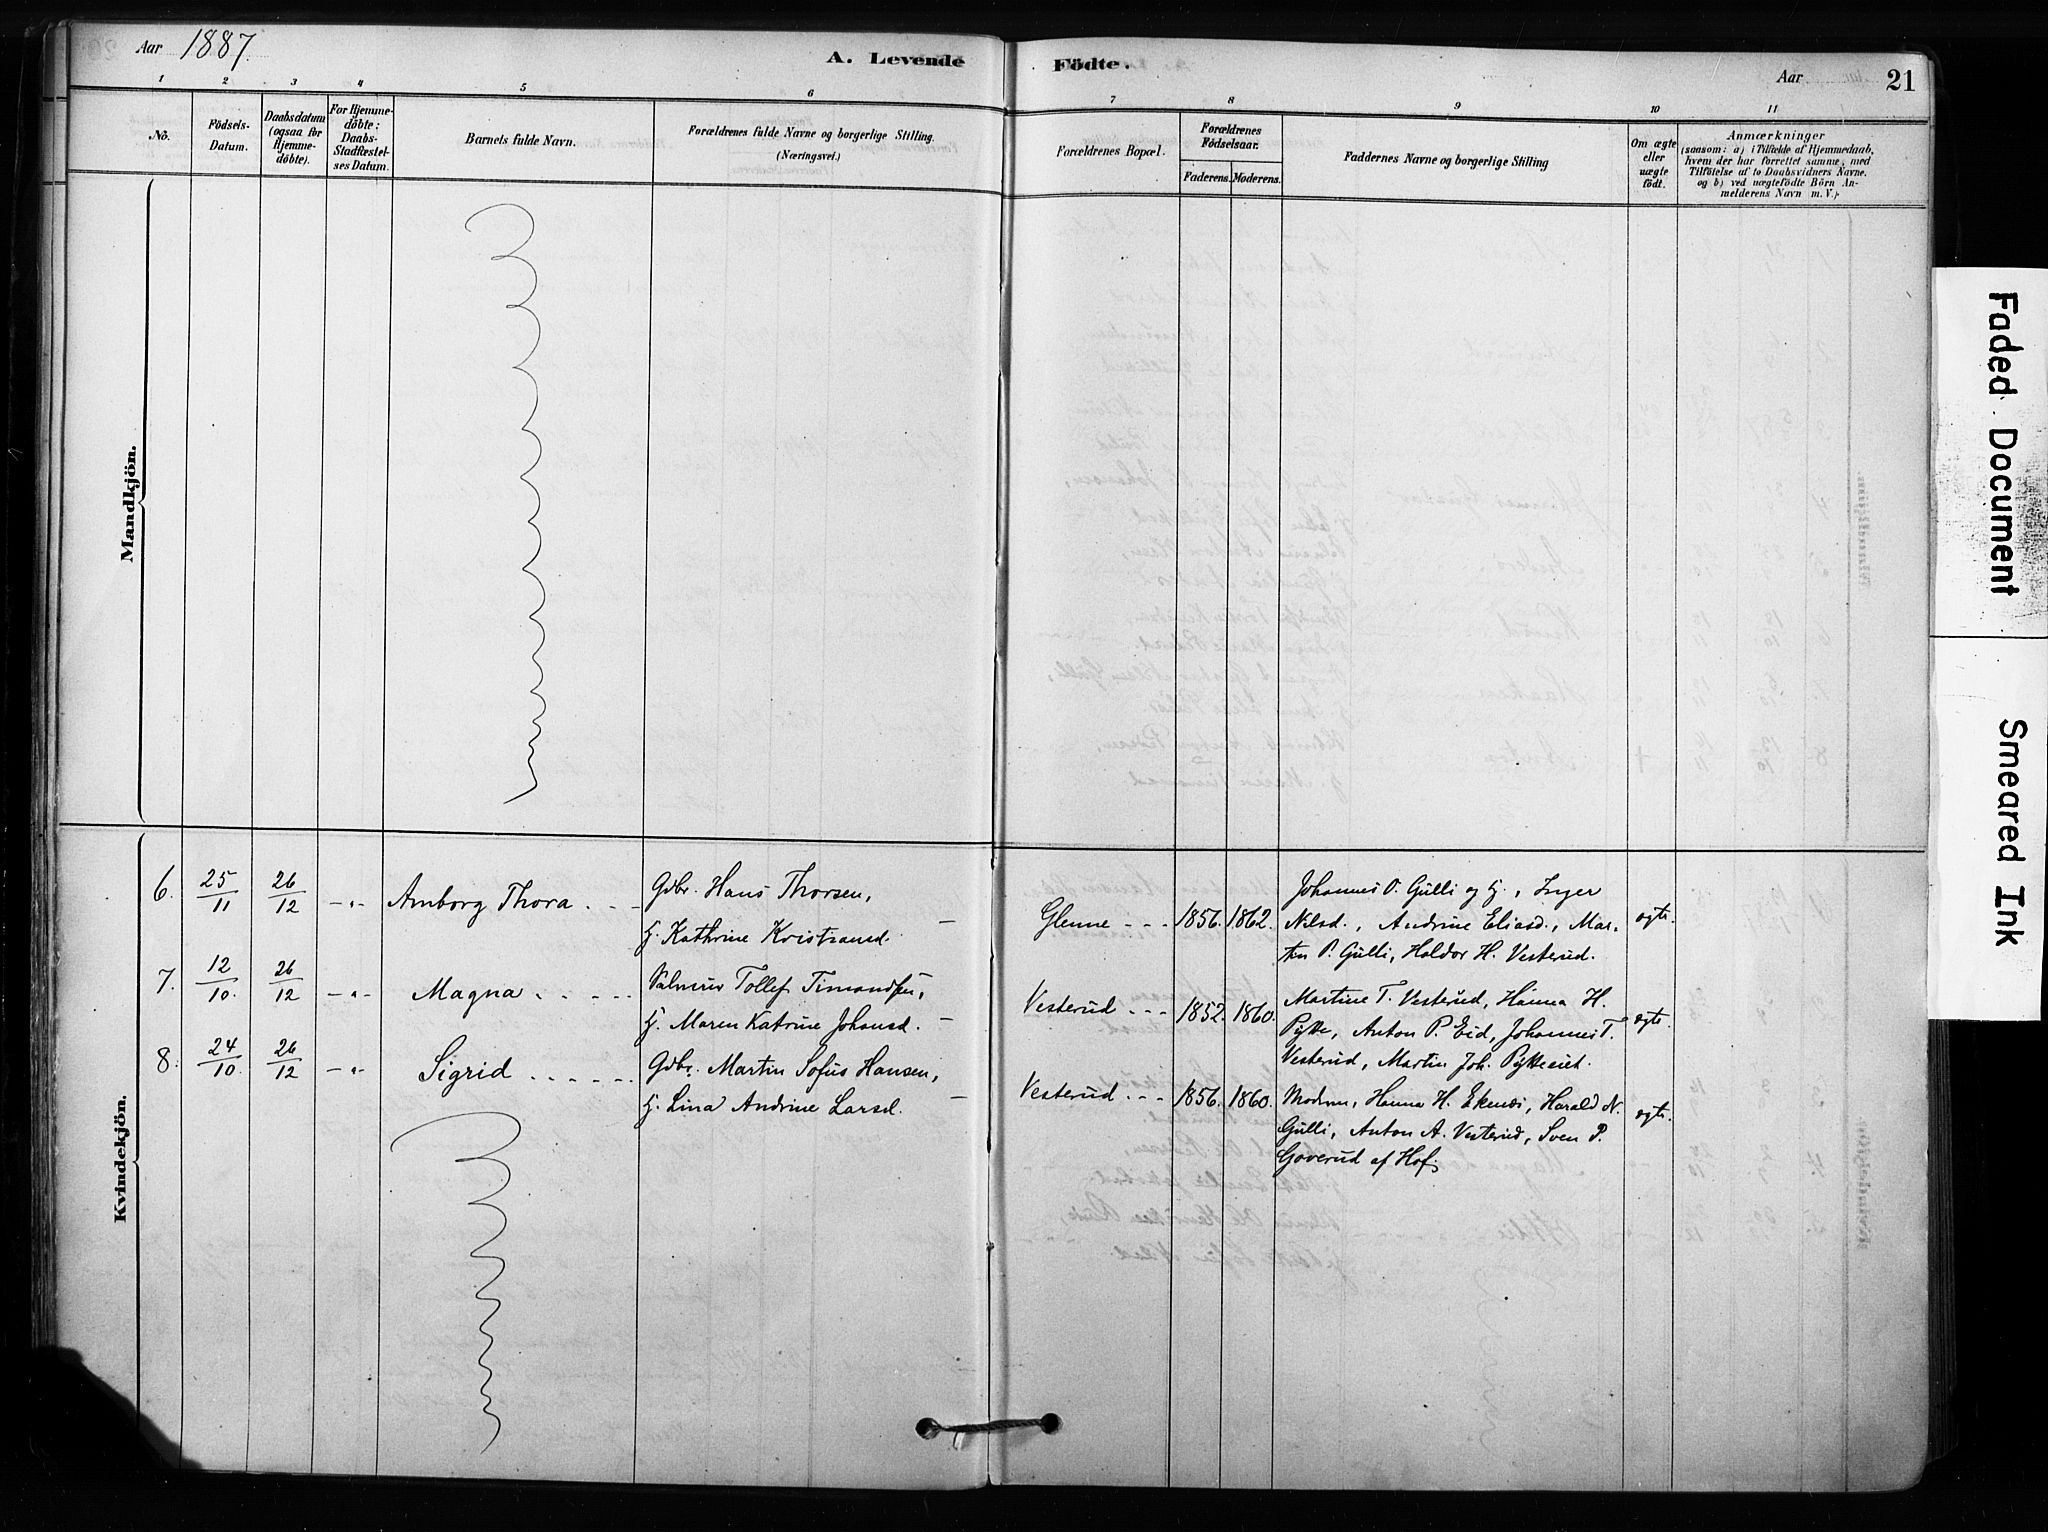 Aar 1887.
A. Levende Födte.
Aar 21
1 2 3 4 5 6 7 8 9 10 11
No.
Födsels-
Datum.
Daabsdatum
(ogsaa för
Hjemme-
döbte).
For Hjemme-
döbte:
Daabs-
Stadfæstel-
ses Datum.
Barnets fulde Navn.
Forældrenes fulde Navne og borgerlige Stilling.
(Næringsvei.)
Forældrenes Bopæl.
Forældrenes
Födselsaar.
Faderens. Moderens.
Faddernes Navne og borgerlige Stilling
Om ægte
eller
uægte
födt.
Anmærkninger
(saasom: a) i Tilfælde af Hjemmedaab,
hvem der har forrettet samme, med
Tilföielse af to Daabsvidners Navne.
og b) ved uægtefödte Börn An-
melderens Navn m. V.)
Mandkjön.
Kvindekjön.
6. 25/11 26/12 -"- Amborg Thora
Gdbr. Hans Thorsen,
h. Kathrine Kristiansd.
Glenne 1856. 1862.
Johannes O. Gulli og h., Inger
Nilsd., Andrine Eliasd., Mar-
tin P. Gulli, Haldor H. Vesterud.
ægte.
7. 12/10. 26/12 -"- Magna
Tollef
h. Maren Katrine Johansd.
Vesterud 1852. 1860.
Martine T. Vesterud, Hanna H.
Anton P. Eid, Johannes T.
Vesterud, Martin Joh.
ægte.
8. 24/10. 26/12 -"- Sigrid
Gdbr. Martin Sofus Hansen,
h. Lina Andrine Larsd.
Vesterud 1856. 1860.
Modren, Hanna H. Harald N.
Gulli, Anton A. Vesterud, Sven P.
Goverud af Hof.
ægte.
Faded Document
Smeared Ink